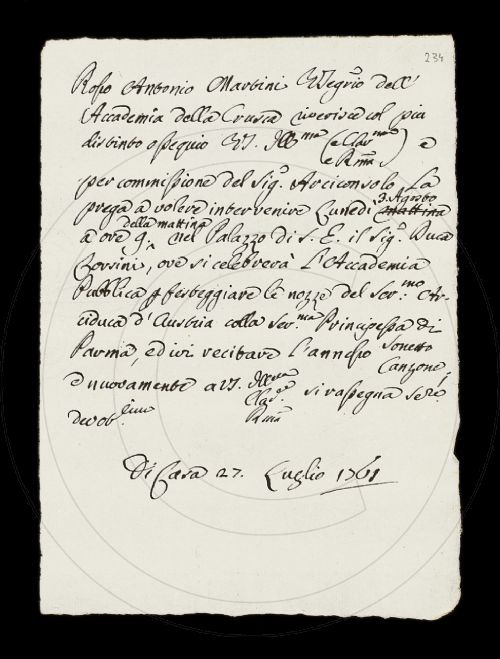 234
Rosso Antonio Martini Vicegr̃io dell'
Accademia della Crusca riverisce col più
distinto ossequio VS. Ill.ma (e Clar.ma e R.ma) e
per commissione del Sig.r Arciconsolo La
prega a volere intervenire Lunedì ~~mattina~~ 3. Agosto
della mattina
a ore 9. nel Palazzo di S. E. il Sig.r Duca
Corsini, ove si celebrerà l'Accademia
Pubblica p festeggiare le nozze del Ser.mo Ar-
ciduca d'Austria colla Ser.ma Principessa di
Parma, ed ivi recitare l'annesso Sonetto
Canzone,
e nuovamente a VS. Ill.ma Clar.ma R.ma si rassegna
devot.
Di Casa 27. Luglio 1761